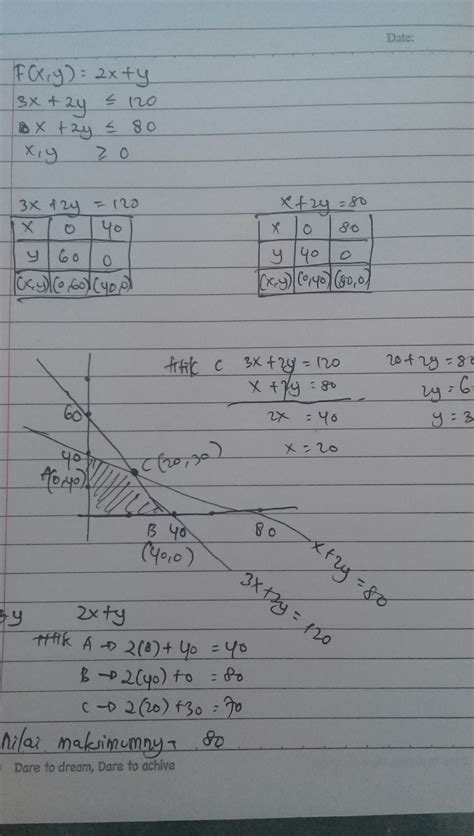 Date:
F(x,y) = 2x+y
3x + 2y ≤ 120
x + 2y ≤ 80
x,y ≥ 0
3x + 2y = 120
x 0 40
y 60 0
(x,y) (0,60) (40,0)
x+2y = 80
x 0 80
y 40 0
(x,y) (0,40) (80,0)
titik C 3x+2y = 120
x + 2y = 80
2x = 40
x = 20
20+2y = 80
2y = 6
y = 3
60
40
A(0,40)
C(20,30)
B 40 80
(40,0)
x+2y = 80
3x+2y = 120
y 2x+y
titik A → 2(0) + 40 = 40
B → 2(40) + 0 = 80
C → 2(20) + 30 = 70
nilai maksimumny 80
Dare to dream, Dare to achive